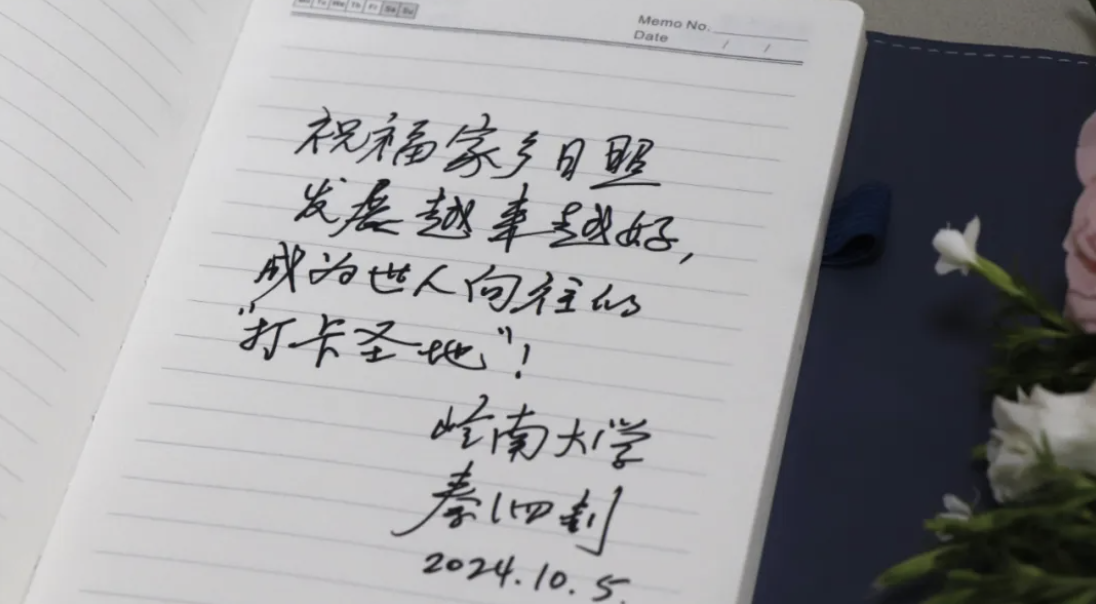 Mo Tu We Th Fr Sa Su
Memo No.
Date / /
祝福家乡日照
发展越来越好,
成为世人向往的
"打卡圣地"!
岭南大学
秦泗钊
2024.10.5.